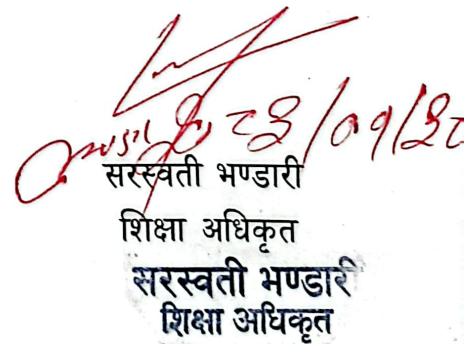 २०८३/०१/३०
सरस्वती भण्डारी
शिक्षा अधिकृत
सरस्वती भण्डारी
शिक्षा अधिकृत